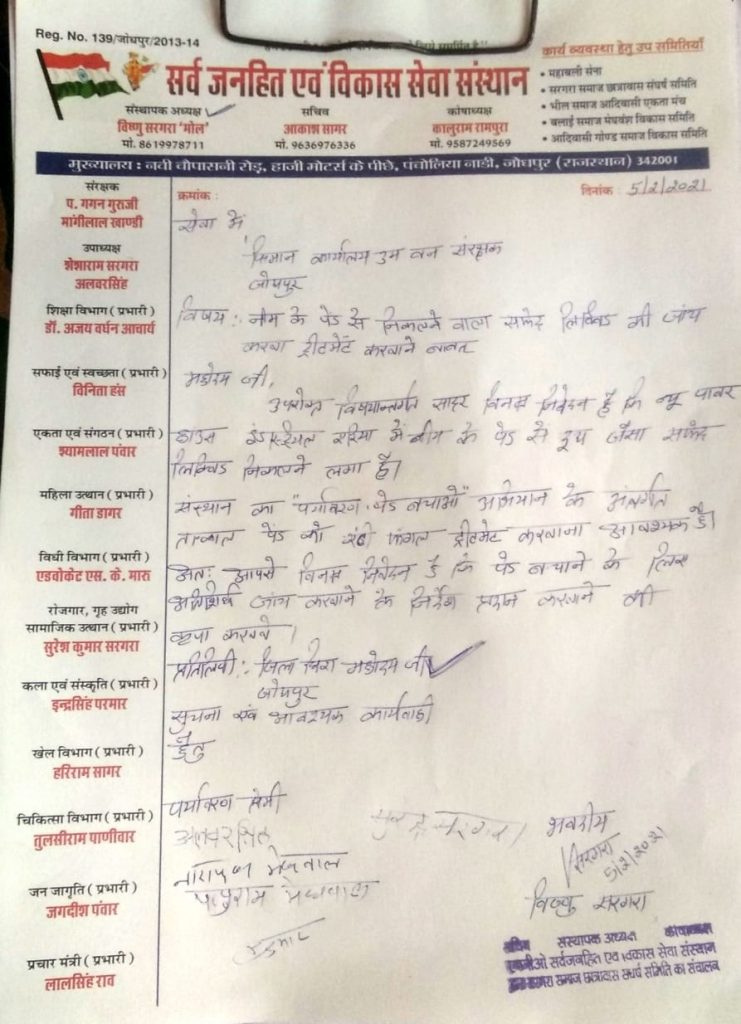 Reg. No. 139/जोधपुर/2013-14
सर्व जनहित एवं विकास सेवा संस्थान
संस्थापक अध्यक्ष
विष्णु सरगरा 'मोल'
मो. 8619978711
सचिव
आकाश सागर
मो. 9636976336
कोषाध्यक्ष
कालुराम रामपुरा
मो. 9587249569
कार्य व्यवस्था हेतु उप समितियाँ
• महाबली सेना
• सरगरा समाज छात्रावास संघर्ष समिति
• भील समाज आदिवासी एकता मंच
• बलाई समाज मेघवंश विकास समिति
• आदिवासी गोण्ड समाज विकास समिति
मुख्यालय : नवी चौपासनी रोड़, हाजी मोटर्स के पीछे, पंचोलिया नाडी, जोधपुर (राजस्थान) 342001
संरक्षक
प. गगन गुरूजी
मांगीलाल खाण्डी
उपाध्यक्ष
शेशाराम सरगरा
अलवरसिंह
शिक्षा विभाग ( प्रभारी )
डॉ. अजय वर्धन आचार्य
सफाई एवं स्वच्छता ( प्रभारी )
विनिता हंस
एकता एवं संगठन ( प्रभारी )
श्यामलाल पंवार
महिला उत्थान ( प्रभारी )
गीता डागर
विधी विभाग ( प्रभारी )
एडवोकेट एस. के. मारू
रोजगार, गृह उद्योग
सामाजिक उत्थान ( प्रभारी )
सुरेश कुमार सरगरा
कला एवं संस्कृति ( प्रभारी )
इन्द्रसिंह परमार
खेल विभाग ( प्रभारी )
हरिराम सागर
चिकित्सा विभाग ( प्रभारी )
तुलसीराम पाणीवार
जन जागृति ( प्रभारी )
जगदीश पंवार
प्रचार मंत्री ( प्रभारी )
लालसिंह राव
क्रमांक :
दिनांक : 5/2/2021
सेवा में
श्रीमान कार्यालय उप वन संरक्षक
जोधपुर
विषय :- नीम के पेड से निकलने वाला सफेद लिक्विड की जांच
करवा ट्रीटमेंट करवाने बाबत
महोदय जी,
उपरोक्त विषयान्तर्गत सादर विनम्र निवेदन है कि न्यू पावर
हाउस इंडस्ट्रियल एरिया में नीम के पेड से दूध जैसा सफेद
लिक्विड निकलने लगा है।
संस्थान का "पर्यावरण पेड बचाओ" अभियान के अंतर्गत
तत्काल पेड को एंटी फंगल ट्रीटमेंट करवाना आवश्यक है।
अतः आपसे विनम्र निवेदन है कि पेड बचाने के लिए
जांच करवाने के निर्देश प्रदान करवाने की
कृपा करावे।
प्रतिलिपी :- जिला महोदय जी
जोधपुर
सुचना एवं आवश्यक कार्यवाही
हेतु
पर्यावरण प्रेमी
अलवरसिंह
नारायण मेघवाल
मेघवाल
सरगरा
भवदीय
सरगरा
5/2/2021
विष्णु सरगरा
संस्थापक अध्यक्ष कोषाध्यक्ष
सर्वजनहित एवं विकास सेवा संस्थान
समाज छात्रावास संघर्ष समिति का संचालन